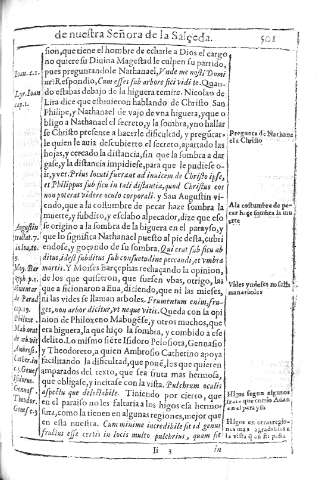 de nuestra Señora de la Salçeda. 501
sion, que tiene el hombre de echarle a Dios el cargo
no quiere su Diuina Magestad le culpen su partido,
pues preguntandole Nathanael, Vnde me nosti Domi
ne? Respondio, Cum esses sub arbore fici vidi te. Quan-
do estabas debajo de la higuera te mire. Nicolao de
Lira dice que estubieron hablando de Christo San
Philipe, y Nathanael de vajo de vna higuera, y que o
bligo a Nathanael el secreto, y la sombra, y no hallar
se Christo presente a hacerle dificultad, y preguntar-
le quien le auia descubierto el secreto, apartado las
hojas, y cercado la distancia, sin que la sombra a dar
gase, y la distancia impidiese, para que le pudiese o-
ir, y ver. Prius locuti fuerant ad inuicem de Christo ipse,
et Philippus sub ficu in tali distantia, quod Christus eos
non poterat videre oculo corporali. Y San Augustin vi-
endo, que a la costumbre de pecar haze sombra la
muerte, y subdito, y esclabo al pecador, dize que eso
se origino a la sombra de la higuera en el parayso, y
que lo significa Nathanael puesto al pie desta, cubri
endose, y goçando de su sombra. Qui erat sub ficu ab
ditus, id est subditus sub consuetudine peccandi, et vmbra
mortis. Y Moises Barcephas rechaçando la opinion,
de los que quisieron, que fuesen vbas, otrigo, las
que aficionaron a Eua, diciendo, que ni las mieses,
ni las vides se llaman arboles. Frumentum enim, fru-
ges, non arbor dicitur, et neque vitis. Queda con la opi
nion de Philoxeno Mabugése, y otros muchos, que
era higuera, la que hiço la sombra, y combido a ese
delito. Lo mismo siéte Isidoro Pelosiota, Gennasio
y Theodoreto, a quien Ambrosio Catherino apoya
facilitando la dificultad, que poné, los que quieren
amparados del texto, que sea fruta mas hermosa,
que obligase, y incitase con la vista. Pulchrum oculis
aspectu que delectabile. Tiniendo por cierto, que
en el paraiso no les faltaria a los higos esa hermo-
sura, como la tienen en algunas regiones, mejor que
en esta nuestra. Cum minime incredibile sit id genus
fructus esse certis in locis multo pulchrius, quam sit
Ii 3 in
Ioan. c. 1.
Lyr. Ioan
cap. 1.
Augustin
Moy. Bar
de Parad
cap. 19.
Isidorus.
Theodor.
Pregunta de Nathana
el a Christo
A la costumbre de pe-
car haze sombra la mu
erte
Vides y mieses no se llaman
Higos segun algunos
en el parayso